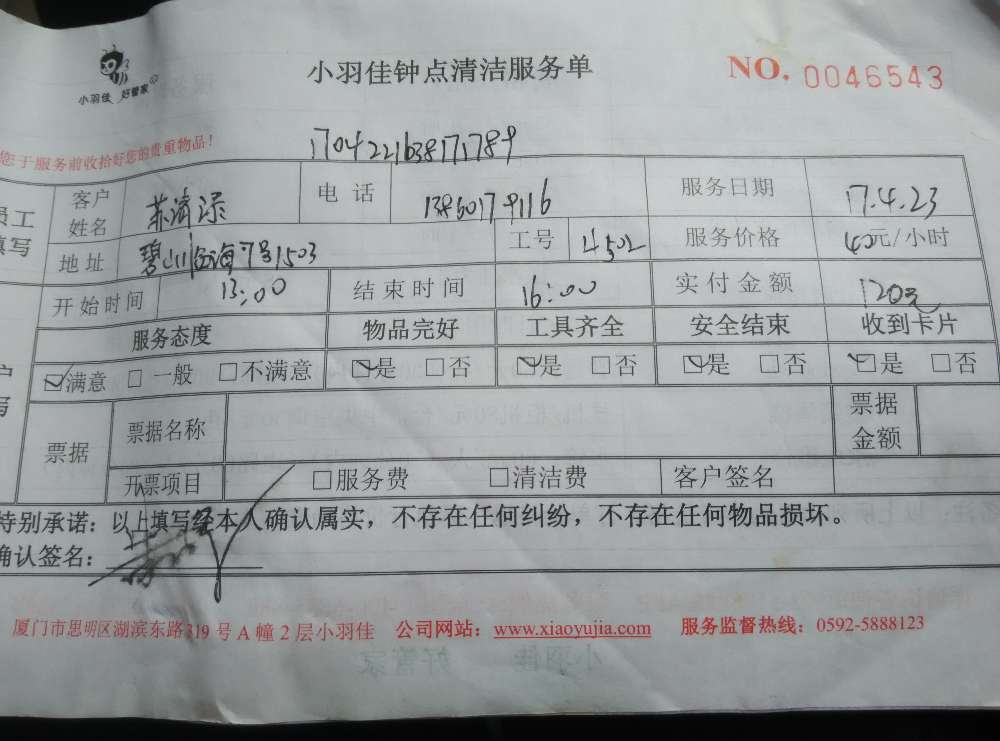 小羽佳 好管家
小羽佳钟点清洁服务单
NO. 0046543
您于服务前收拾好您的贵重物品！
1704221638171789
员工
填写
客户
姓名
电话
服务日期 17.4.23
地址 7号1503
工号 4502
服务价格 40元/小时
开始时间 13:00
结束时间 16:00
实付金额 120元
服务态度 物品完好 工具齐全 安全结束 收到卡片
满意 一般 不满意 是 否 是 否 是 否 是 否
票据
票据名称
票据
金额
开票项目 服务费 清洁费 客户签名
特别承诺：以上填写经本人确认属实，不存在任何纠纷，不存在任何物品损坏。
确认签名：
厦门市思明区湖滨东路319号A幢2层小羽佳 公司网站：www.xiaoyujia.com 服务监督热线：0592-5888123